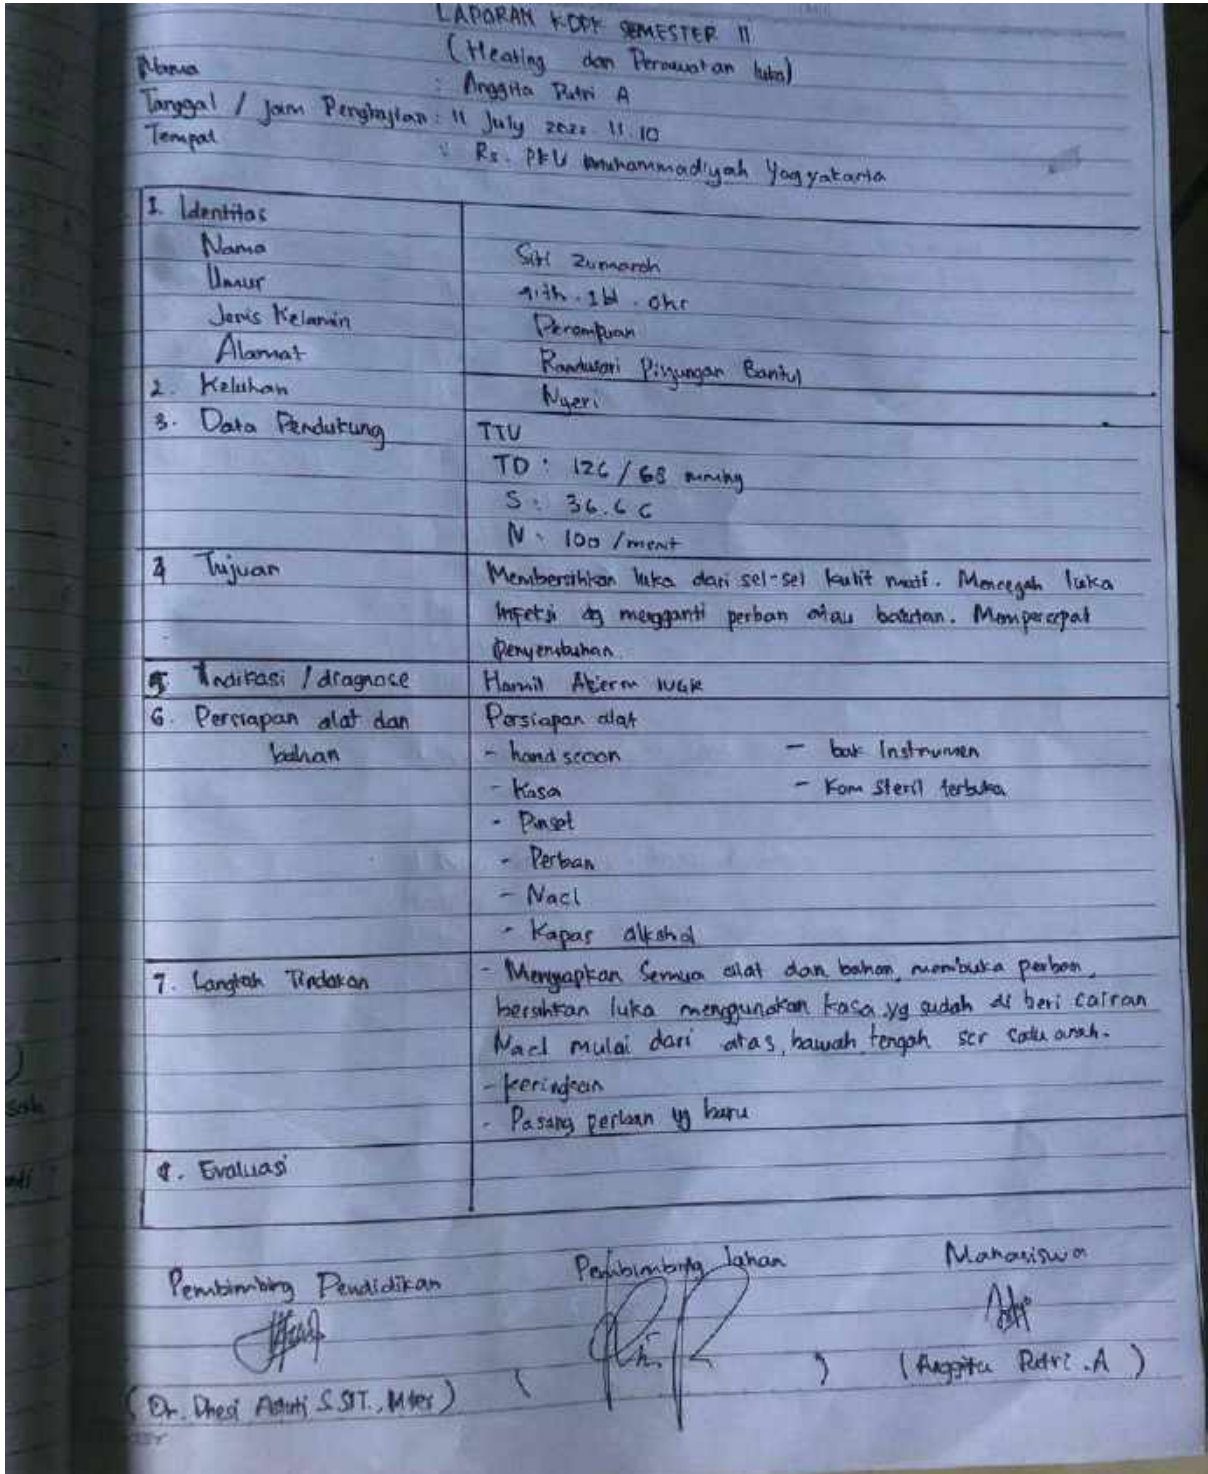 LAPORAN KDPK SEMESTER II
(Heating dan Perawatan luka)
Nama : Anggita Putri A
Tanggal / Jam Pengkajian : 11 July 2022 11.10
Tempat : Rs. PKU Muhammadiyah Yogyakarta
1. Identitas
Nama Siti Zumaroh
Umur th . 1 bl . 0hr
Jenis Kelamin Perempuan
Alamat Randusari Piyungan Bantul
2. Keluhan Nyeri
3. Data Pendukung TTV
TD : 126/68 mmhg
S : 36.6 C
N : 100 /menit
4 Tujuan Membersihkan luka dari sel-sel kulit mati. Mencegah luka
infeksi dg mengganti perban atau balutan. Mempercepat
Penyembuhan.
5 Indikasi / diagnose Hamil Aterm IUGR
6. Persiapan alat dan Persiapan alat
bahan - hand scoon - bak Instrumen
- Kasa - Kom steril terbuka
- Pinset
- Perban
- Nacl
- Kapas alkohol
7. Langkah Tindakan - Menyapkan Semua alat dan bahan, membuka perban,
bersihkan luka menggunakan kasa yg sudah di beri cairan
Nacl mulai dari atas, bawah, tengah scr satu arah.
- keringkan
- Pasang perban yg baru
8. Evaluasi
Pembimbing Pendidikan Pembimbing lahan Mahasiswa
(Dr. Dhesi Astuti S.SIT., ) ( ) (Anggita Putri .A)